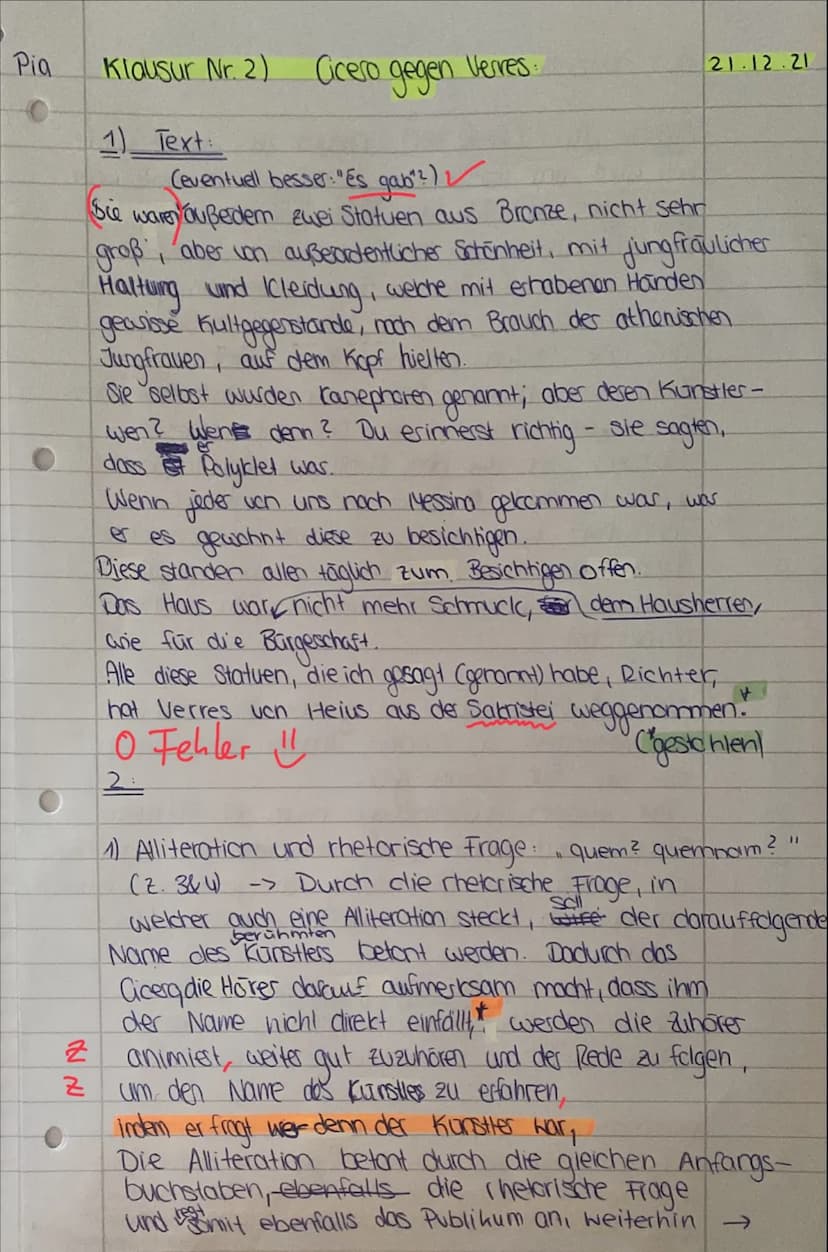 Pia Klausur Nr. 2) Cicero gegen Verres: 21.12.21
1) Text:
(eventuell besser: "Es gab"?) ✓
(Sie waren) außedem zwei Statuen aus Bronze, nicht sehr
groß, aber von außeordentlicher Schönheit, mit jungfräulicher
Haltung und Kleidung, welche mit erhabenen Händen
gewisse Kultgegenstände, nach dem Brauch der athenischen
Jungfrauen, auf dem Kopf hielten.
Sie selbst wurden Kanephoren genannt; aber deren Künstler-
wen? Wen denn? Du erinnerst richtig - sie sagten,
dass er Polyklet war.
Wenn jeder von uns nach Messina gekommen war, war
er es gewohnt diese zu besichtigen.
Diese standen allen täglich zum Besichtigen offen.
Das Haus war nicht mehr Schmuck, dem Hausherren,
wie für die Bürgeschaft.
Alle diese Statuen, die ich gesagt (genannt) habe, Richter,
hat Verres von Heius aus der Sakristei weggenommen.*
0 Fehler (*gestohlen)
2:
1) Alliteration und rhetorische Frage: „quem? quemnam?"
(Z. 3&4) -> Durch die rhetorische Frage, in
welcher auch eine Alliteration steckt, soll der darauffolgende
Name des berühmten Künstlers betont werden. Dadurch das
Cicero die Hörer darauf aufmerksam macht, dass ihm
der Name nicht direkt einfällt,* werden die Zuhörer
Z animiert, weiter gut zuzuhören und der Rede zu folgen,
Z um den Name des Künstlers zu erfahren,
indem er fragt wer denn der Künstler war,
Die Alliteration betont durch die gleichen Anfangs-
buchstaben, ebenfalls die rhetorische Frage
und somit ebenfalls das Publikum an, weiterhin →